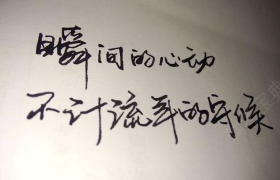 瞬间的心动
不计流年的守候